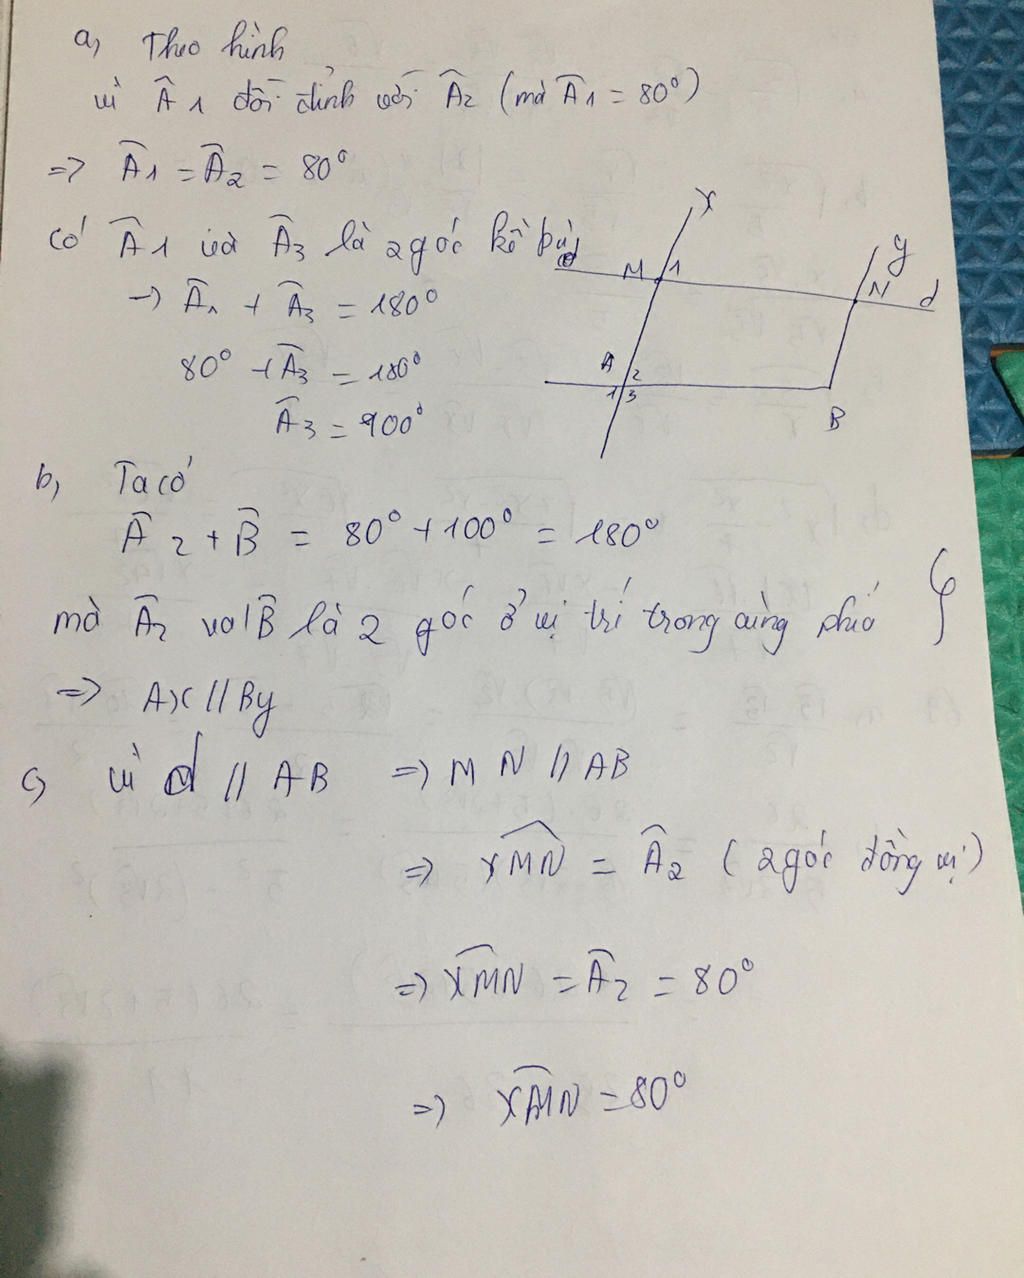 a, Theo hình
vì Â1 đối đỉnh với Â2 (mà Â1 = 80°)
=> Â1 = Â2 = 80°
có Â1 và Â3 là 2 góc kề bù
-> Â1 + Â3 = 180°
80° + Â3 = 180°
Â3 = 100°
x
y
M 1
N d
A 2
1 3
B
b, Ta có
Â2 + B̂ = 80° + 100° = 180°
mà Â2 và B̂ là 2 góc ở vị trí trong cùng phía
=> Ax // By
c, vì d // AB => MN // AB
=> xMN = Â2 (2 góc đồng vị)
=> xMN = Â2 = 80°
=> xMN = 80°